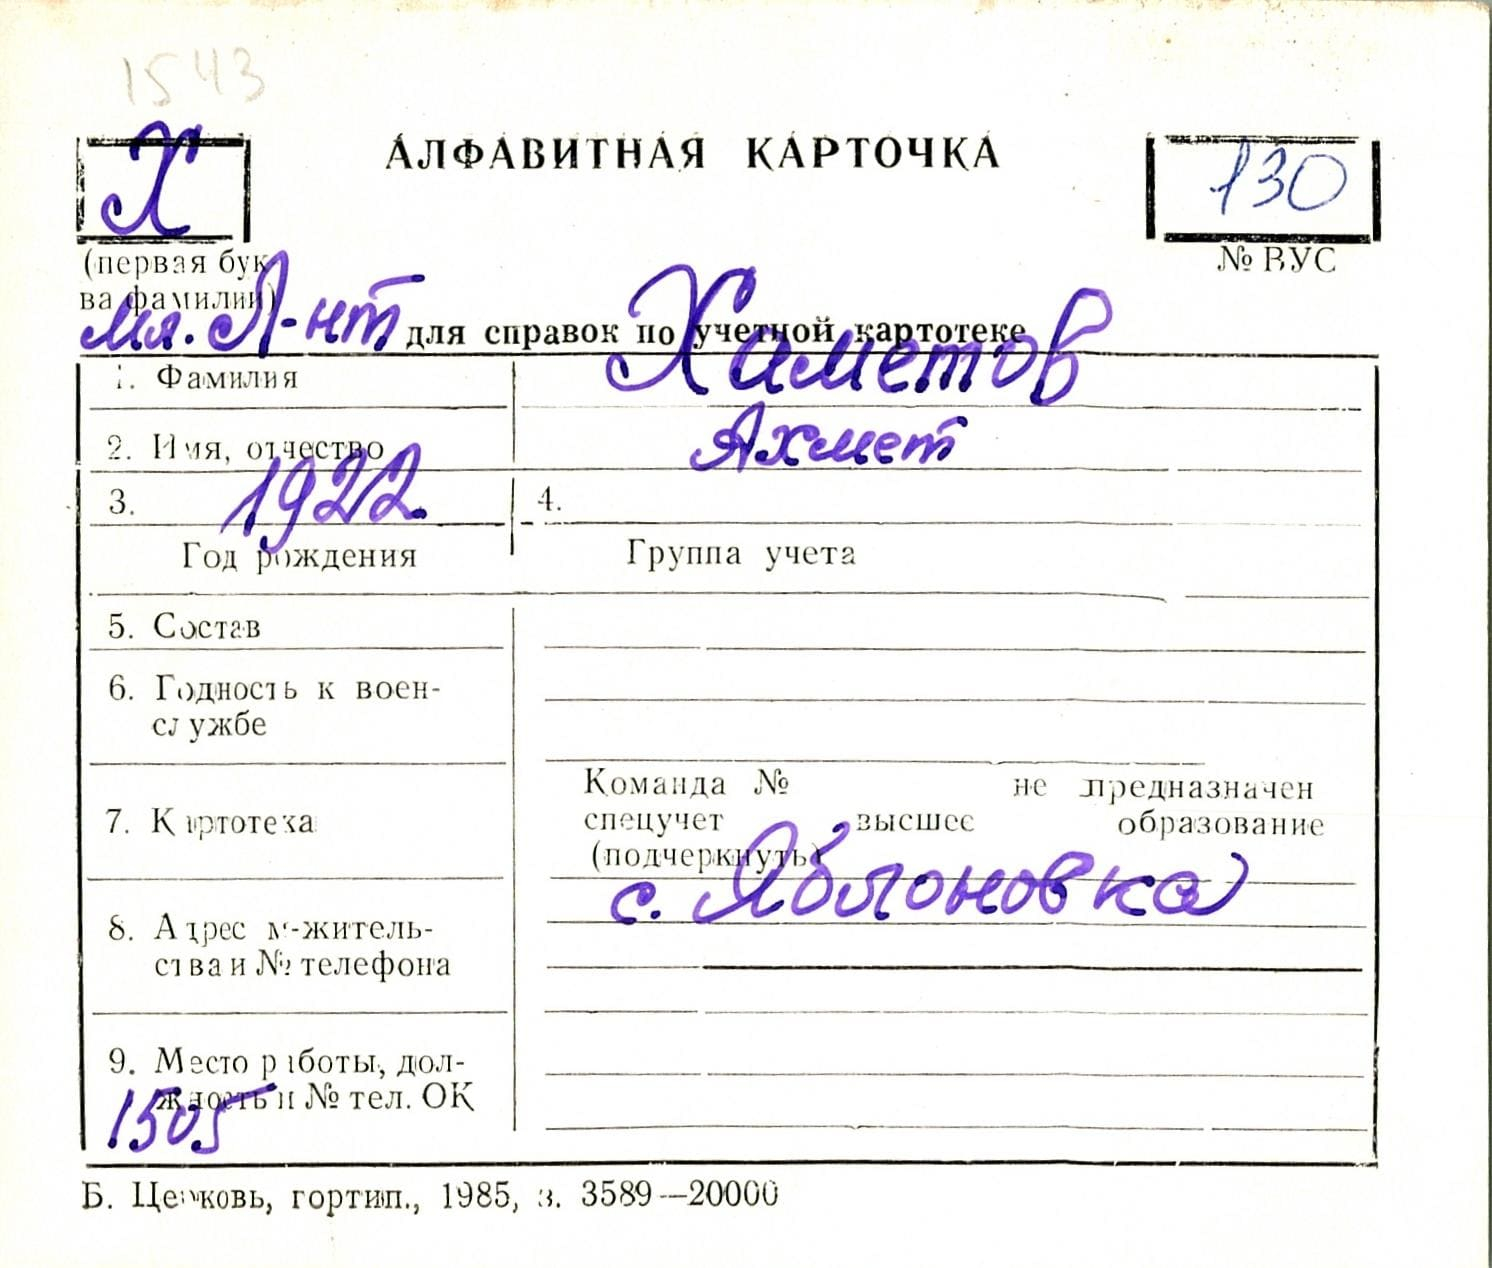 1543
Х АЛФАВИТНАЯ КАРТОЧКА 130
(первая бук- № ВУС
ва фамилии)
мл. Л-нт для справок по учетной картотеке
1. Фамилия Хаметов
2. Имя, отчество Ахмет
3. 1922. 4.
Год рождения Группа учета
5. Состав
6. Годность к воен-
службе
Команда № не предназначен
7. Картотека спецучет высшее образование
(подчеркнуть)
с. Яблоновка
8. Адрес м-житель-
ства и № телефона
9. Место работы, дол-
жность и № тел. ОК
1505
Б. Церковь, гортип., 1985, з. 3589—20000